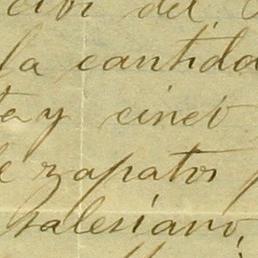 del
la cantida
ta y cinco
e zapatos
salesiano,